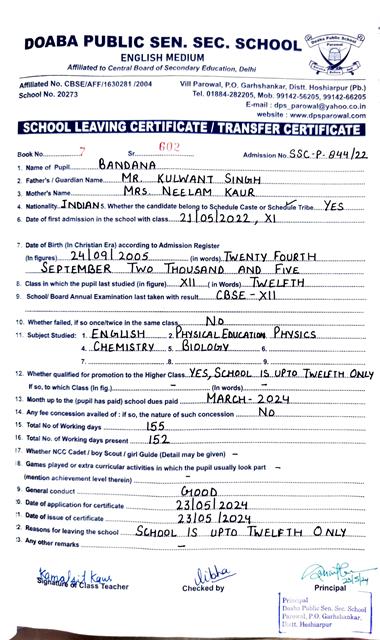 DOABA PUBLIC SEN. SEC. SCHOOL
ENGLISH MEDIUM
Affiliated to Central Board of Secondary Education, Delhi
Doaba Public School
Parowal
Affiliated No. CBSE/AFF/1630281 /2004
School No. 20273
Vill Parowal, P.O. Garhshankar, Distt. Hoshiarpur (Pb.)
Tel. 01884-282205, Mob. 99142-56205, 99142-66205
E-mail : dps_parowal@yahoo.co.in
website : www.dpsparowal.com
SCHOOL LEAVING CERTIFICATE / TRANSFER CERTIFICATE
Book No. 7 Sr. 602 Admission No. SSC-P-844/22
1. Name of Pupil BANDANA
2. Father's / Guardian Name MR. KULWANT SINGH
3. Mother's Name MRS. NEELAM KAUR
4. Nationality INDIAN 5. Whether the candidate belong to Schedule Caste or Schedule Tribe YES
6. Date of first admission in the school with class 21/05/2022, XI
7. Date of Birth (In Christian Era) according to Admission Register
(In figures) 24/09/2005 (in words) TWENTY FOURTH
SEPTEMBER TWO THOUSAND AND FIVE
8. Class in which the pupil last studied (in figure) XII ( in Words) TWELFTH
9. School/ Board Annual Examination last taken with result CBSE - XII
10. Whether failed, if so once/twice in the same class No
11. Subject Studied : 1. ENGLISH 2. PHYSICAL EDUCATION PHYSICS
4. CHEMISTRY 5. BIOLOGY 6.
7. 8. 9.
12. Whether qualified for promotion to the Higher Class YES, SCHOOL IS UPTO TWELFTH ONLY
If so, to which Class (in fig.) – (In words) –
13. Month up to the (pupil has paid) school dues paid MARCH - 2024
14. Any fee concession availed of : if so, the nature of such concession No
15. Total No of Working days 155
16. Total No. of Working days present 152
17. Whether NCC Cadet / boy Scout / girl Guide (Detail may be given) –
18. Games played or extra curricular activities in which the pupil usually look part –
(mention achievement level therein) –
9. General conduct GOOD
Date of application for certificate 23/05/2024
Date of issue of certificate 23/05/2024
Reasons for leaving the school SCHOOL IS UPTO TWELFTH ONLY
Any other remarks –
Kamaljit Kaur
Signature of Class Teacher Checked by Principal
Principal
Doaba Public Sen. Sec. School
Parowal, P.O. Garhshankar,
Distt. Hoshiarpur